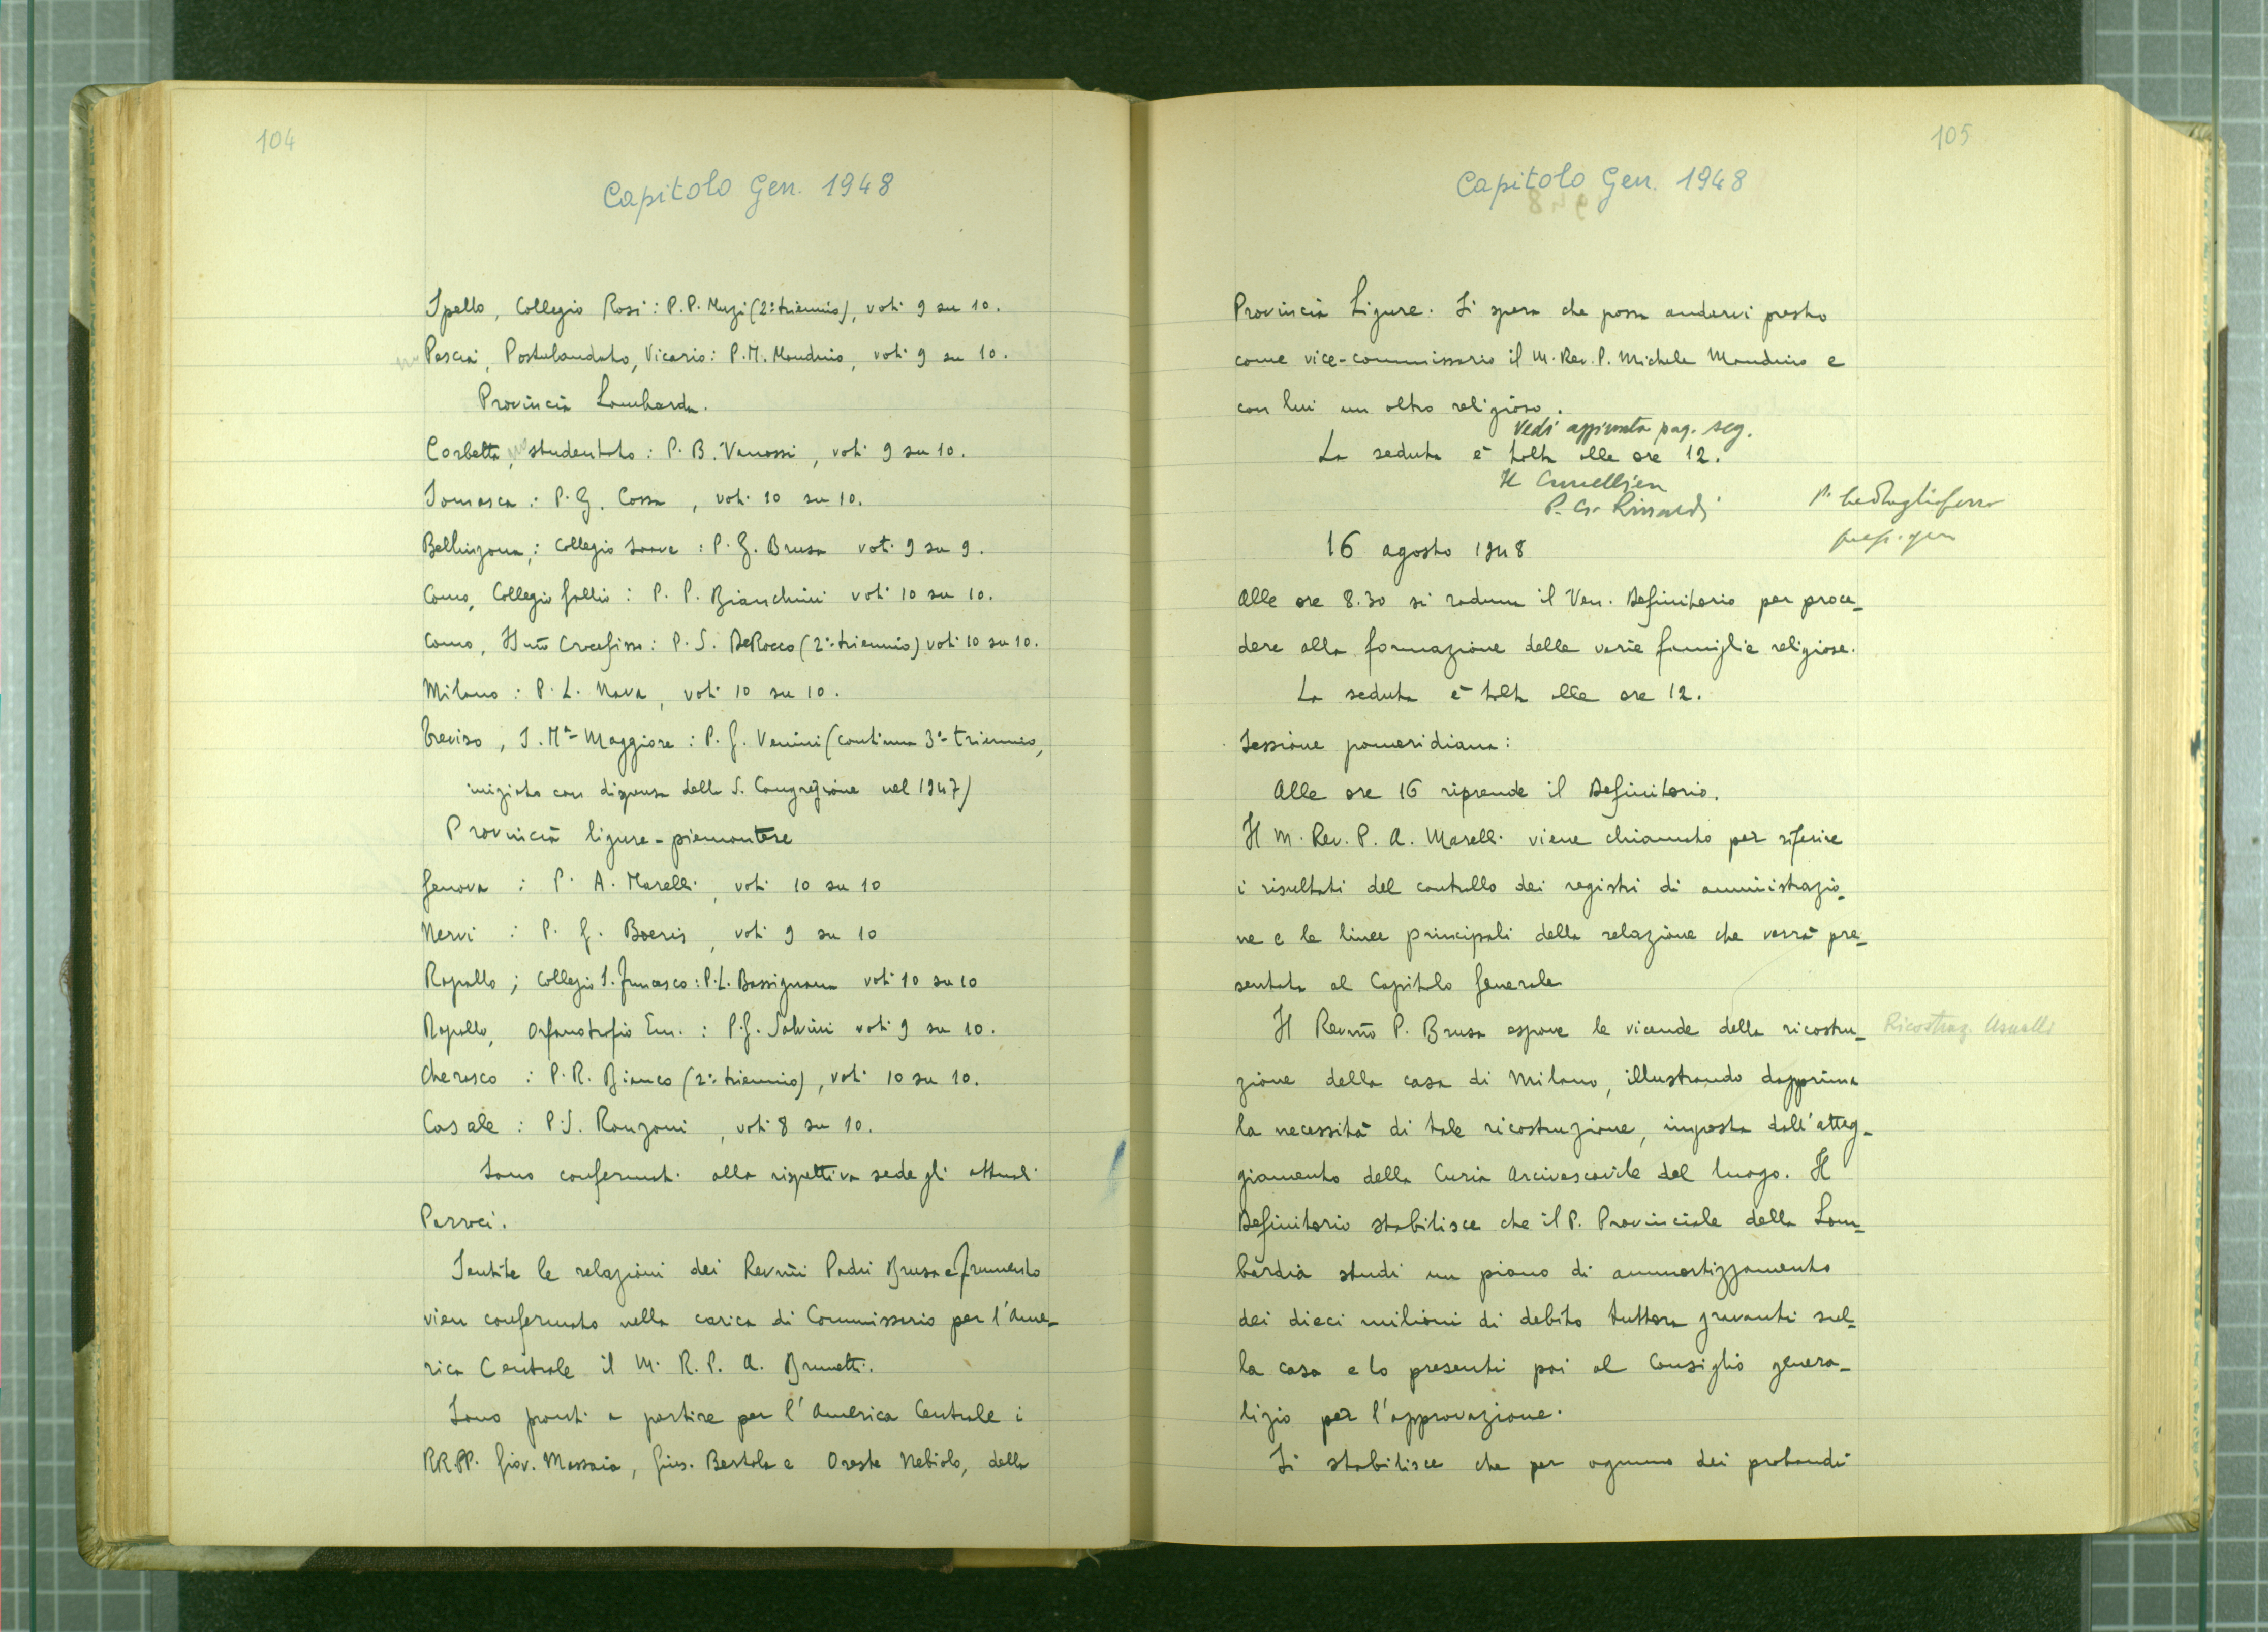 104
Capitolo Gen. 1948
Spello, Collegio Rosi: P. P. Muzi (2º triennio), voti 9 su 10.
Pescia, Postulandato, Vicario: P. M. Mondino, voti 9 su 10.
Provincia Lombarda.
Corbetta, studentato: P. B. Vanossi, voti 9 su 10.
Somasca: P. G. Cossa, voti 10 su 10.
Bellinzona; Collegio Soave: P. G. Brusa voti 9 su 9.
Como, Collegio Gallio: P. P. Bianchini voti 10 su 10.
Como, SSmo Crocefisso: P. S. De Rocco (2º triennio) voti 10 su 10.
Milano: P. L. Nava, voti 10 su 10.
Treviso, S. Mª Maggiore: P. G. Venini (continua 3º triennio,
iniziato con dispensa della S. Congregzione nel 1947)
Provincia ligure-piemontese
Genova: P. A. Marelli, voti 10 su 10
Nervi: P. G. Boeris, voti 9 su 10
Rapallo; Collegio S. Francesco: P. L. Bassignana voti 10 su 10
Rapallo, Orfanotrofio Em.: P. G. Salvini voti 9 su 10.
Cherasco: P. R. Bianco (2º triennio), voti 10 su 10.
Casale: P. S. Ronzoni, voti 8 su 10.
Sono confermati alla rispettiva sede gli attuali
Parroci.
Sentite le relazioni dei Revmi Padri Brusa e Frumento
vien confermato nella carica di Commissario per l'Ame-
rica Centrale il M. R. P. A. Brunetti.
Sono pronti a partire per l'America Centrale i
RR. PP. Giov. Massaia, Gius. Bertola e Oreste Nebiolo, della
105
Capitolo Gen. 1948
Provincia Ligure. Si spera che possa andarvi presto
come vice-commissario il M. Rev. P. Michele Mondino e
con lui un altro religioso.
Vedi aggiunta pag. seg.
La seduta è tolta alle ore 12.
Il Cancelliere
P. G. Rinaldi
P. Tagliaferro
prep. gen
16 agosto 1948
Alle ore 8.30 si raduna il Ven. Definitorio per proce-
dere alla formazione delle varie famiglie religiose.
La seduta è tolta alle ore 12.
Sessione pomeridiana:
Alle ore 16 riprende il Definitorio.
Il M. Rev. P. A. Marelli viene chiamato per riferire
i risultati del controllo dei registri di amministrazio-
ne e le linee principali della relazione che verrà pre-
sentata al Capitolo Generale
Il Revmo P. Brusa espone le vicende della ricostru-
Ricostruz. Usuelli
zione della casa di Milano, illustrando dapprima
la necessità di tale ricostruzione, imposta dall'atteg-
giamento della Curia Arcivescovile del luogo. Il
Definitorio stabilisce che il P. Provinciale della Lom-
bardia studi un piano di ammortizzamento
dei dieci milioni di debito tuttora gravanti sul-
la casa e lo presenti poi al Consiglio genera-
lizio per l'approvazione.
Si stabilisce che per ognuno dei probandi